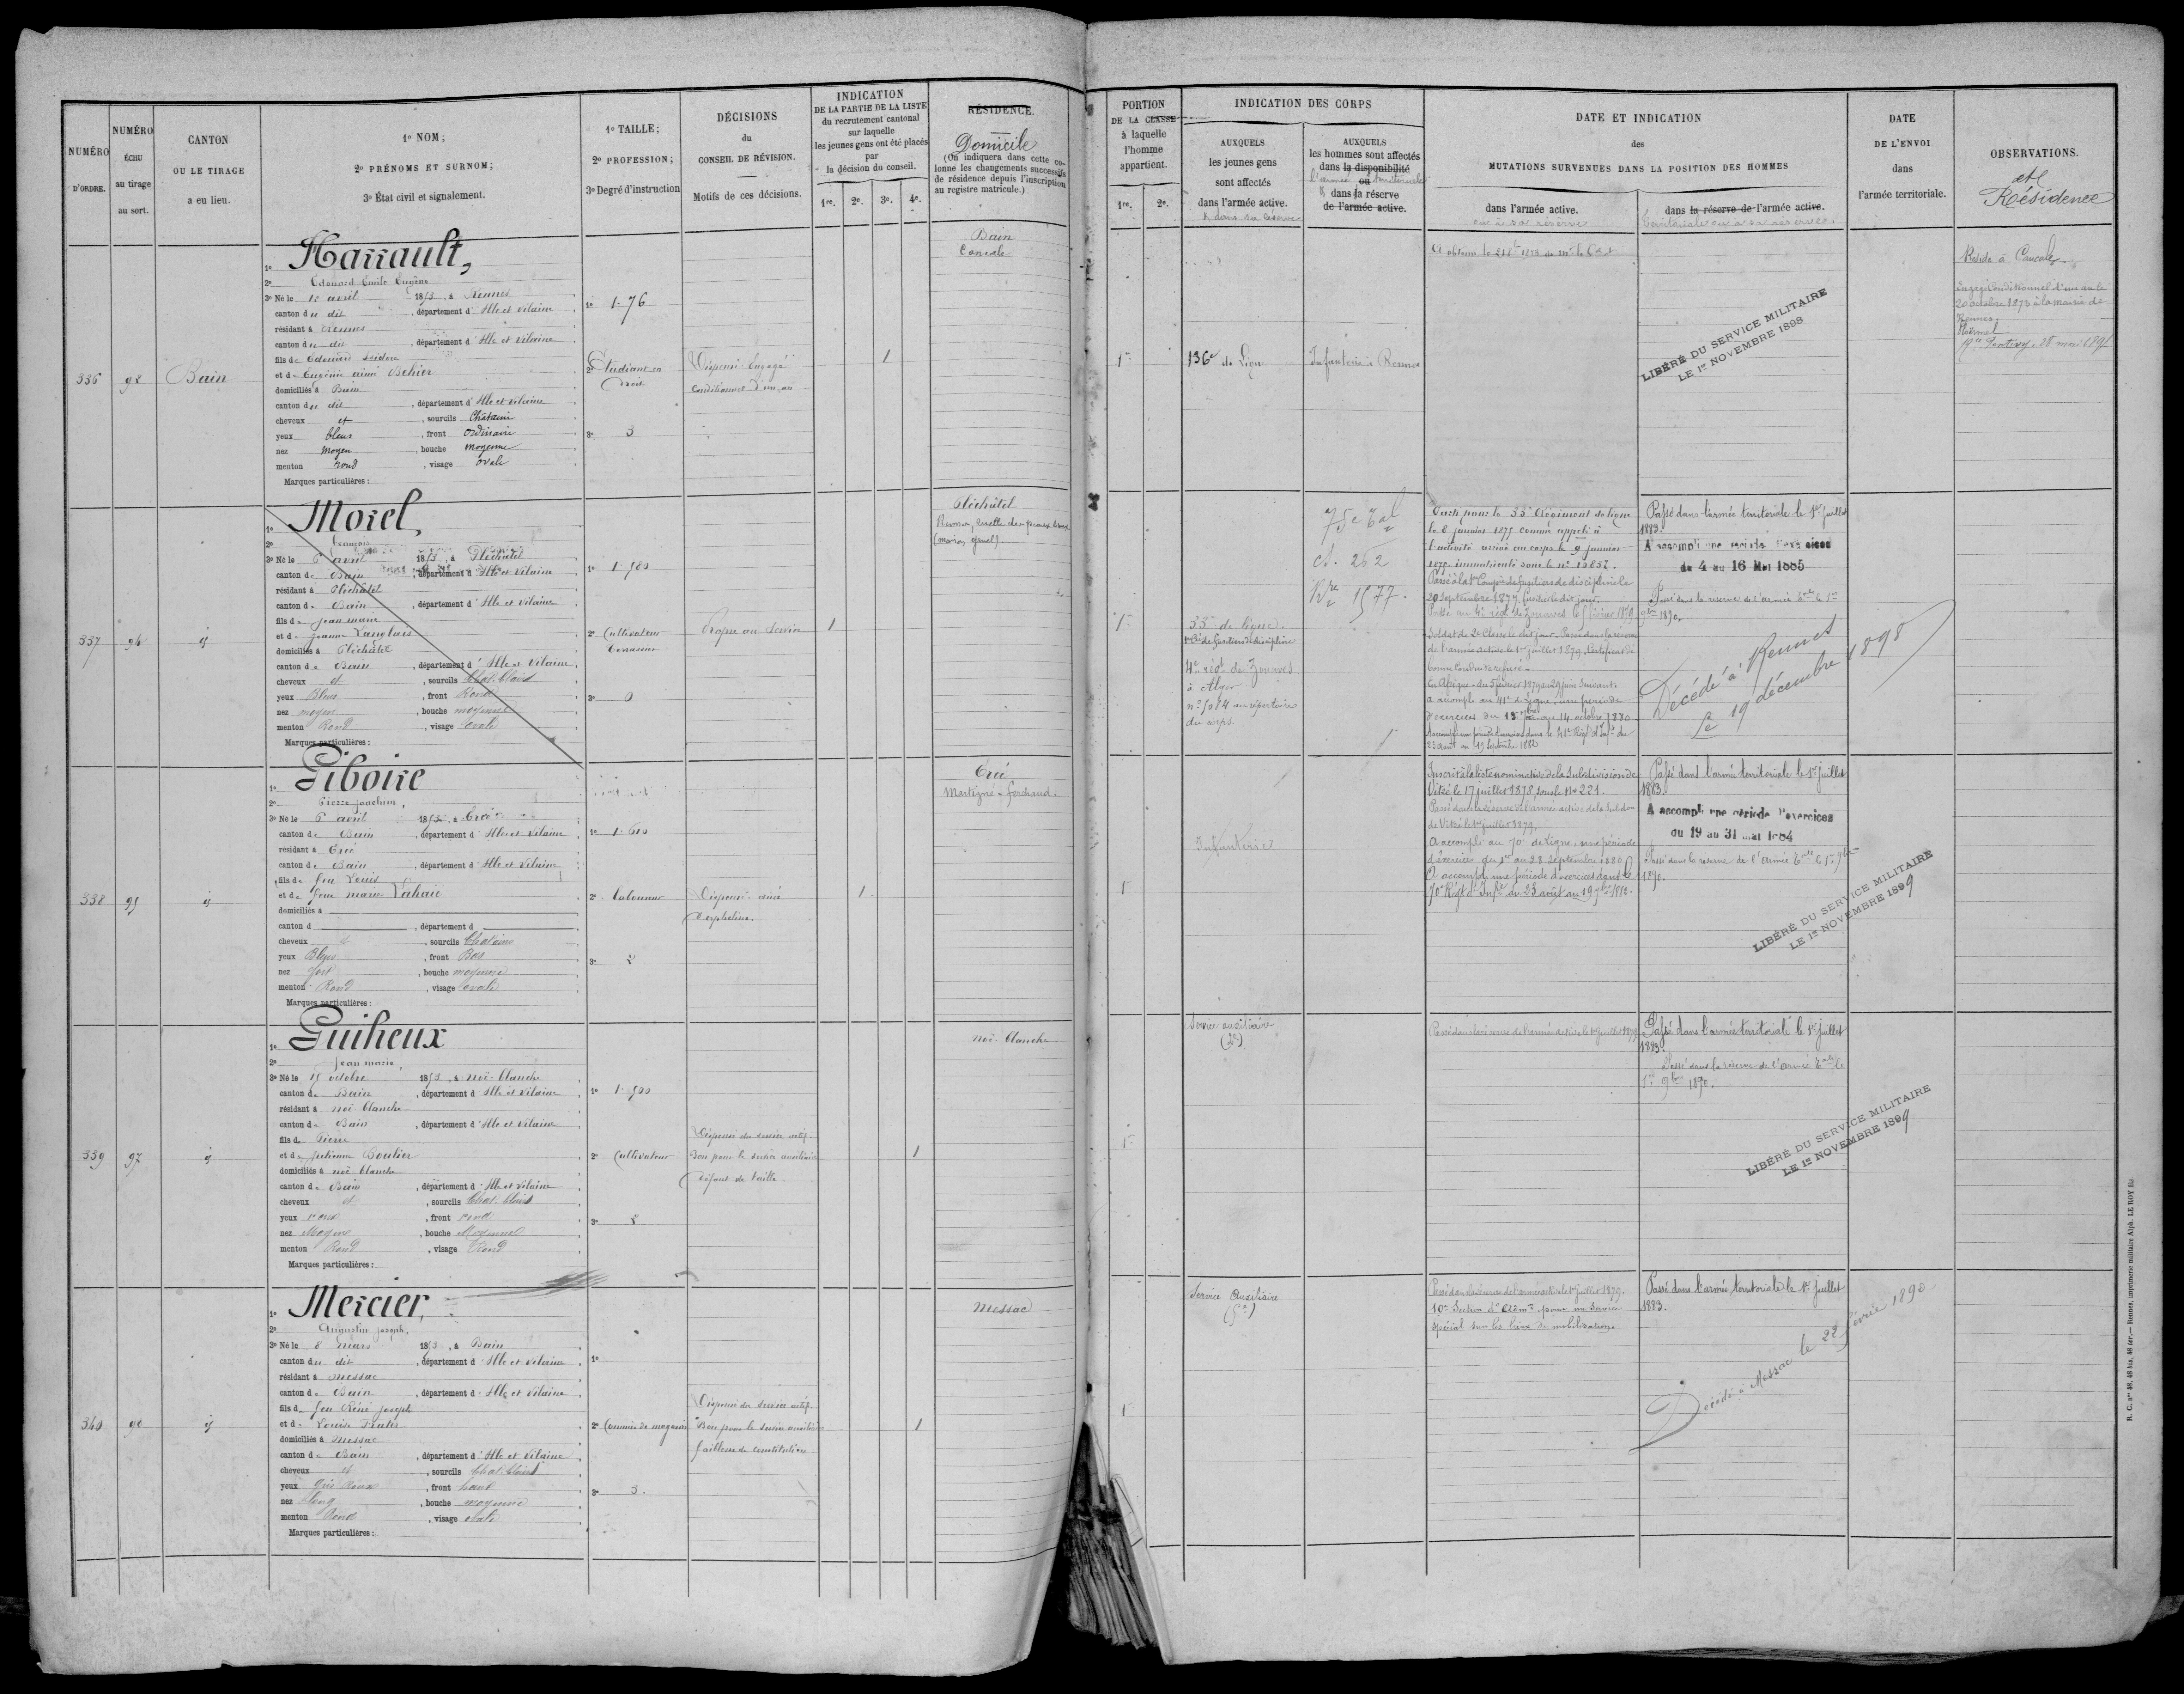 NUMÉRO
D'ORDRE.
NUMÉRO
ÉCHU
au tirage
au sort.
CANTON
OU LE TIRAGE
a eu lieu.
1º NOM;
2º PRÉNOMS ET SURNOM;
3º État civil et signalement.
1º TAILLE;
2º PROFESSION;
3º Degré d'instruction
DÉCISIONS
du
CONSEIL DE RÉVISION.
Motifs de ces décisions.
INDICATION
DE LA PARTIE DE LA LISTE
du recrutement cantonal
sur laquelle
les jeunes gens ont été placés
par
la décision du conseil.
1re. 2e. 3e. 4e.
RÉSIDENCE.
Domicile
(On indiquera dans cette co-
lonne les changements successifs
de résidence depuis l'inscription
au registre matricule.)
PORTION
DE LA CLASSE
à laquelle
l'homme
appartient.
1re. 2e.
INDICATION DES CORPS
AUXQUELS
les jeunes gens
sont affectés
dans l'armée active.
& dans sa réserve
AUXQUELS
les hommes sont affectés
dans la disponibilité
l'armée ou territoriale
& dans sa réserve
de l'armée active.
DATE ET INDICATION
des
MUTATIONS SURVENUES DANS LA POSITION DES HOMMES
dans l'armée active.
ou à sa réserve
dans la réserve de l'armée active.
territoriale ou à sa réserve.
DATE
DE L'ENVOI
dans
l'armée territoriale.
OBSERVATIONS.
et
Résidence
336 98 Bain
1º Harrault,
2º Edouard Emile Eugène
3º Né le 12 avril 1853, à Rennes
canton du dit, département d'Ille et Vilaine
résidant à Rennes
canton du dit, département d'Ille et Vilaine
fils de Edouard Isidore
et de Eugénie aimé Behier
domiciliés à Bain
canton du dit, département d'Ille et Vilaine
cheveux et, sourcils Chatain
yeux bleus, front ordinaire
nez moyen, bouche moyenne
menton rond, visage ovale
Marques particulières:
1º 1.76
2º Etudiant en
Droit
3º 3
Dispensé Engagé
conditionnel d'un an
1
Bain
Cancale
1re
136e de Ligne
Infanterie à Rennes
LIBÉRÉ DU SERVICE MILITAIRE
LE 1er NOVEMBRE 1898
Réside à Cancale.
Engagé Conditionnel d'un an le
20 octobre 1873 à la mairie de
Rennes.
Ploërmel
Pontivy, 28 mai 189
337 94 id
1º Morel,
2º françois
3º Né le 6 avril 1853, à Pléchatel
canton de Bain, département d'Ille et Vilaine
résidant à Pléchatel
canton de Bain, département d'Ille et Vilaine
fils de Jean marie
et de Jeanne Langlais
domiciliés à Pléchatel
canton de Bain, département d'Ille et Vilaine
cheveux et, sourcils Chat. Clairs
yeux Bleus, front Rond
nez moyen, bouche moyenne
menton Rond, visage ovale
Marques particulières:
1º 1.580
2º Cultivateur
Terrassier
3º 0
Propre au Service
1
Pléchatel
1re
33e de ligne.
1re Cie de fusiliers de discipline
4e régt de Zouaves
à Alger
nº 5014 au répertoire
du corps
75e Tal
ct. 262
1577.
Parti pour le 33e Régiment de ligne
le 8 janvier 1875 comme appelé à
l'activité arrivé au corps le 9 janvier
1875, immatriculé sous le nº
Passé à la 1re Compie de fusiliers de discipline le
Passé au 4e régt de Zouaves le 5 février 1879
Soldat de 2e Classe le dit jour. Passé dans la réserve
de l'armée active le 1er juillet 1879. Certificat de
bonne conduite refusé.
En Afrique, du 5 février 1879 au 29 juin suivant.
a accompli au 41e de Ligne, une période
d'exercices du au 14 octobre 1880
Accompli une période d'exercices dans le 41e Régt d'Infie du
23 août au 19 Septembre 1882
Passé dans l'armée territoriale le 1er juillet
1883.
A accompli une période d'exercices
du 4 au 16 Mai 1885
Passé dans la réserve de l'armée Tale le 1er
9bre 1890.
Décédé à Rennes
Le 19 décembre 1898
338 95 id
1º Giboire
2º Pierre Joachim,
3º Né le 6 avril 1853, à Ercé
canton de Bain, département d'Ille et Vilaine
résidant à Ercé
canton de Bain, département d'Ille et Vilaine
fils de feu Louis
et de feue marie Lahaie
domiciliés à
canton d , département d
cheveux et, sourcils Chatains
yeux Bleus, front Bas
nez fort, bouche moyenne
menton Rond, visage ovale
Marques particulières:
1º 1.610
2º Laboureur
3º 2
Dispensé ainé
d'orphelins.
1
Ercé
Martigné-ferchaud.
1re
Infanterie
Inscrit à la liste nominative de la Subdivision de
Vitré le 17 juillet 1878, sous le Nº 221.
Passé dans la réserve de l'armée active de la Subdon
de Vitré le 1er juillet 1879.
A accompli au 70e de Ligne, une période
d'exercices du 1er au 28 Septembre 1880.
A accompli une période d'exercices dans le
70e Régt d'Infie du 23 août au 19 7bre 1882.
Passé dans l'armée territoriale le 1er juillet
1883.
A accompli une période d'exercices
du 19 au 31 mai 1884
Passé dans la réserve de l'armée Tale le 1er 9bre
1890.
LIBÉRÉ DU SERVICE MILITAIRE
LE 1er NOVEMBRE 1899
339 97 id
1º Guiheux
2º Jean marie,
3º Né le 15 octobre 1853, à noë-blanche
canton de Bain, département d'Ille et Vilaine
résidant à noë blanche
canton de Bain, département d'Ille et Vilaine
fils de Pierre
et de Julienne Boulier
domiciliés à noë blanche
canton de Bain, département d'Ille et Vilaine
cheveux et, sourcils Chat. Clairs
yeux roux, front rond
nez Moyen, bouche Moyenne
menton Rond, visage Rond
Marques particulières:
1º 1.500
2º Cultivateur
3º 2
Dispensé du service actif.
Bon pour le service auxiliaire
Défaut de taille
1
noë-blanche
1re
Service auxiliaire
Passé dans la réserve de l'armée active le 1er juillet 1879
Passé dans l'armée territoriale le 1er juillet
1883.
Passé dans la réserve de l'armée Tale le
1er 9bre 1890.
LIBÉRÉ DU SERVICE MILITAIRE
LE 1er NOVEMBRE 1899
340 90 id
1º Mercier,
2º Augustin Joseph,
3º Né le 8 mars 1853, à Bain
canton du dit, département d'Ille et Vilaine
résidant à messac
canton de Bain, département d'Ille et Vilaine
fils de feu René Joseph
et de Louise
domiciliés à Messac
canton de Bain, département d'Ille et Vilaine
cheveux et, sourcils Chat. Clairs
yeux Gris Roux, front haut
nez long, bouche moyenne
menton Rond, visage ovale
Marques particulières:
1º
2º Commis de magasin
3º 3.
Dispensé du service actif.
Bon pour le service auxiliaire
faiblesse de constitution
1
Messac
1re
Service Auxiliaire
Passé dans la réserve de l'armée active le 1er juillet 1879.
10e Section d'Admon pour un Service
spécial sur les lieux de mobilisation.
Passé dans l'armée territoriale le 1er juillet
1883.
Décédé à Messac le 22 février 1890
R. C. nos 48, 48 bis, 48 ter. — Rennes, imprimerie militaire Alph. LE ROY fils